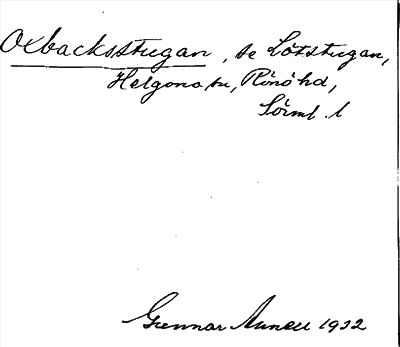 Oxbacksstugan, se Lötstugan,
Helgona sn, Rönö hd,
Sörml. l
Gunnar Annell 1932